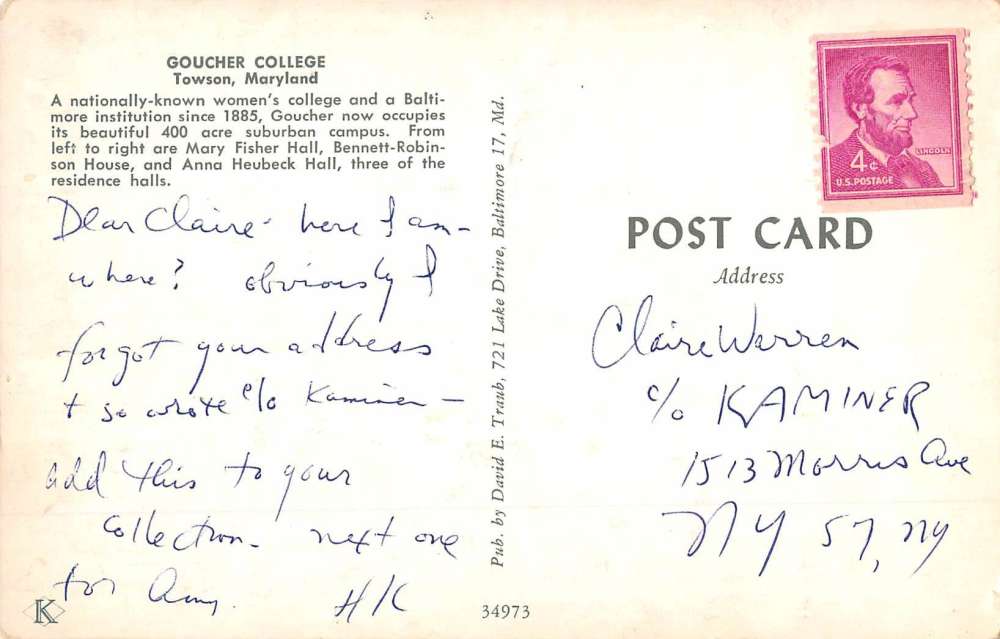 GOUCHER COLLEGE
Towson, Maryland
A nationally-known women's college and a Balti-
more institution since 1885, Goucher now occupies
its beautiful 400 acre suburban campus. From
left to right are Mary Fisher Hall, Bennett-Robin-
son House, and Anna Heubeck Hall, three of the
residence halls.
Dear Claire - here I am -
where? obviously I
forgot your address
+ so wrote c/o Kaminer -
add this to your
collection - next one
for Amy. HK
K
Pub. by David E. Traub, 721 Lake Drive, Baltimore 17, Md.
34973
LINCOLN
4¢
U.S. POSTAGE
POST CARD
Address
Claire Warren
c/o KAMINER
1513 Morris Ave
NY 57, NY